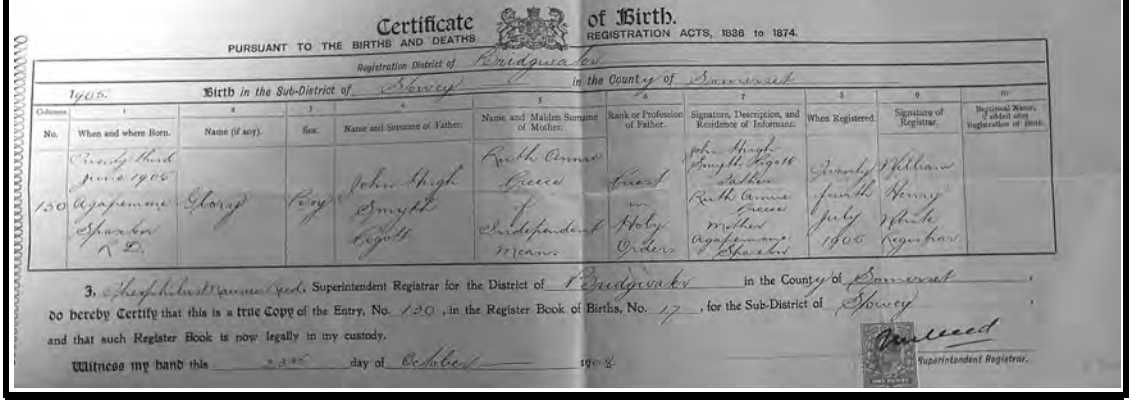 Certificate of Birth.
PURSUANT TO THE BIRTHS AND DEATHS REGISTRATION ACTS, 1836 to 1874.
Registration District of Bridgwater
1905. Birth in the Sub-District of Stowey in the County of Somerset
Columns 1 2 3 4 5 6 7 8 9 10
No. When and where Born. Name (if any). Sex. Name and Surname of Father. Name and Maiden Surname of Mother. Rank or Profession of Father. Signature, Description, and Residence of Informant. When Registered. Signature of Registrar. Baptismal Name, if added after Registration of Birth.
130
Twenty third
June 1905
Agapemone
Spaxton
R.D.
Glory
Boy
John Hugh
Smyth
Pigott
Ruth Annie
Preece
of
Independent
Means
Priest
in
Holy
Orders
John Hugh
Smyth Pigott
Father
Ruth Annie
Preece
Mother
Agapemone
Spaxton
Twenty
fourth
July
1905
William
Henry
White
Registrar
I, Maurice Reed, Superintendent Registrar for the District of Bridgwater in the County of Somerset,
do hereby Certify that this is a true Copy of the Entry, No. 130, in the Register Book of Births, No. 17, for the Sub-District of Stowey
and that such Register Book is now legally in my custody.
Superintendent Registrar.
Witness my hand this day of October
ONE PENNY